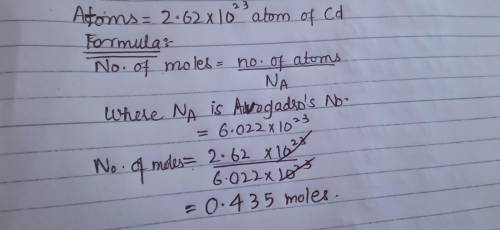 Atoms = 2.62 x 10²³ atom of Cd
Formula:-
No. of moles = no. of atoms / NA
Where NA is Avogadro's No.
= 6.022 x 10²³
No. of moles = 2.62 x 10²³ / 6.022 x 10²³
= 0.435 moles.